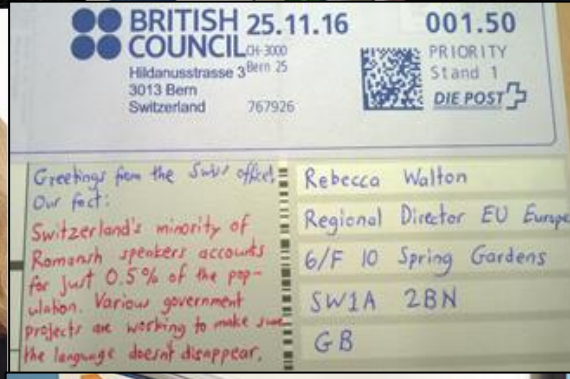 BRITISH
COUNCIL
Hildanusstrasse 3
3013 Bern
Switzerland
25.11.16
CH-3000
Bern 25
767926
001.50
PRIORITY
Stand 1
DIE POST
Greetings from the Swiss office!
Our fact:
Switzerland's minority of
Romansh speakers accounts
for just 0.5% of the pop-
ulation. Various government
projects are working to make sure
the language doesn't disappear.
Rebecca Walton
Regional Director EU Europe
6/F 10 Spring Gardens
SW1A 2BN
GB